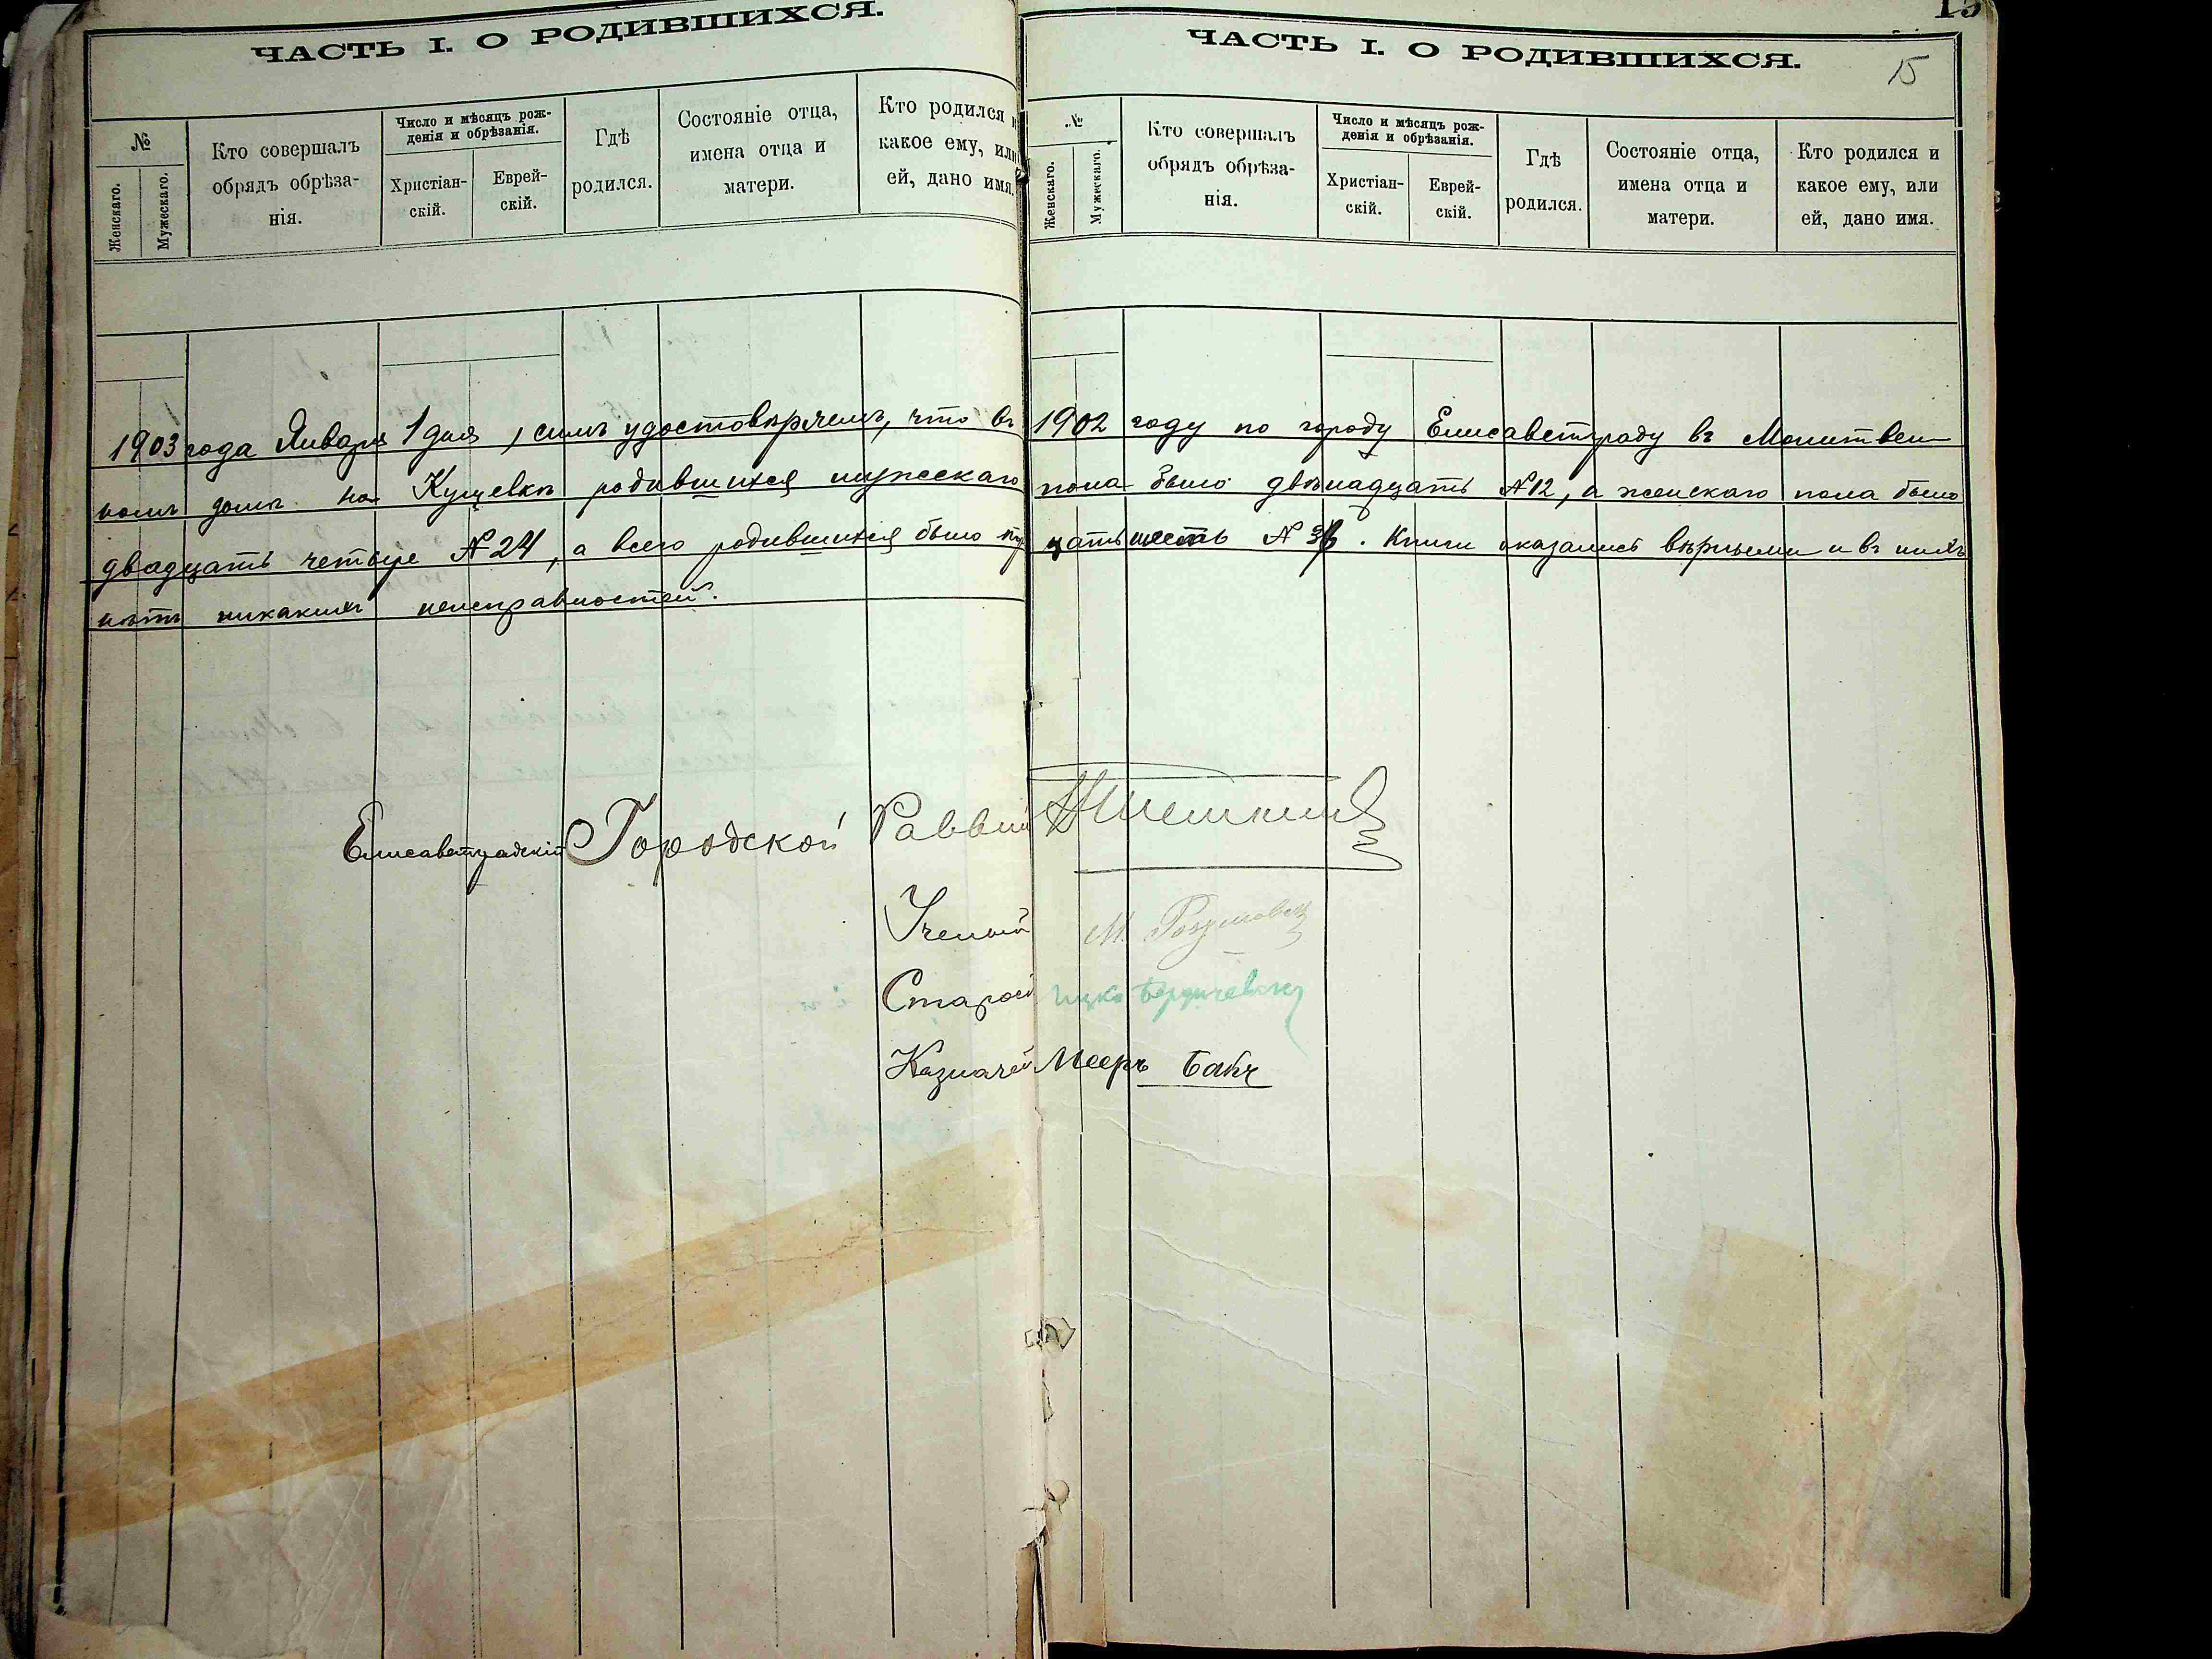 ЧАСТЬ I. О РОДИВШИХСЯ.
№
Женскаго.
Мужескаго.
Кто совершалъ
обрядъ обрѣза-
нія.
Число и мѣсяцъ рож-
денія и обрѣзанія.
Христіан-
скій.
Еврей-
скій.
Гдѣ
родился.
Состояніе отца,
имена отца и
матери.
Кто родился и
какое ему, или
ей, дано имя.
ЧАСТЬ I. О РОДИВШИХСЯ.
15
15
№
Женскаго.
Мужескаго.
Кто совершалъ
обрядъ обрѣза-
нія.
Число и мѣсяцъ рож-
денія и обрѣзанія.
Христіан-
скій.
Еврей-
скій.
Гдѣ
родился.
Состояніе отца,
имена отца и
матери.
Кто родился и
какое ему, или
ей, дано имя.
1903 года Января 1 дня, симъ удостовѣряемъ, что въ 1902 году по городу Елисаветграду въ Молитвен-
номъ домѣ на Кущевкѣ родившихся мужескаго пола было двѣнадцать №12, а женскаго пола было
двадцать четыре №24, а всего родившихся было тридцать шесть №36. Книги оказались вѣрными и въ нихъ
нѣтъ никакихъ неисправностей.
Елисаветградскій Городской Раввинъ
Ученый М.
Старост Ицко Бердичевскій
Казначей Мееръ Бабч